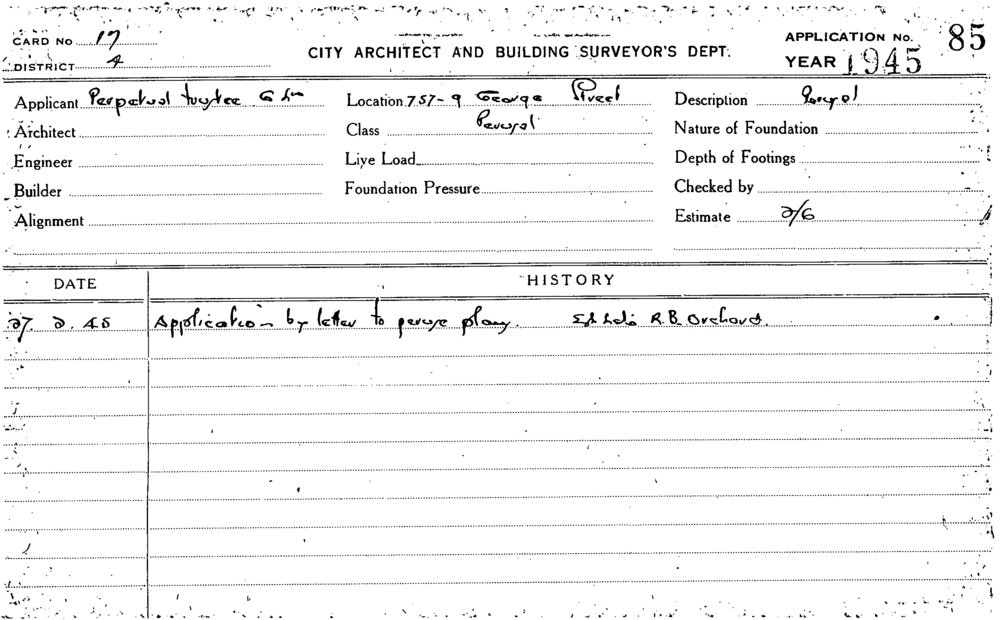 CARD NO 17
DISTRICT 4
CITY ARCHITECT AND BUILDING SURVEYOR'S DEPT.
APPLICATION NO. 85
YEAR 1945
Applicant Perpetual Trustee Co Ltd
Location 757-9 George Street
Description Perusal
Architect
Class Perusal
Nature of Foundation
Engineer
Live Load
Depth of Footings
Builder
Foundation Pressure
Checked by
Alignment
Estimate 2/6
DATE HISTORY
27. 2. 45 Application by letter to peruse plans. R.B. Orchard.